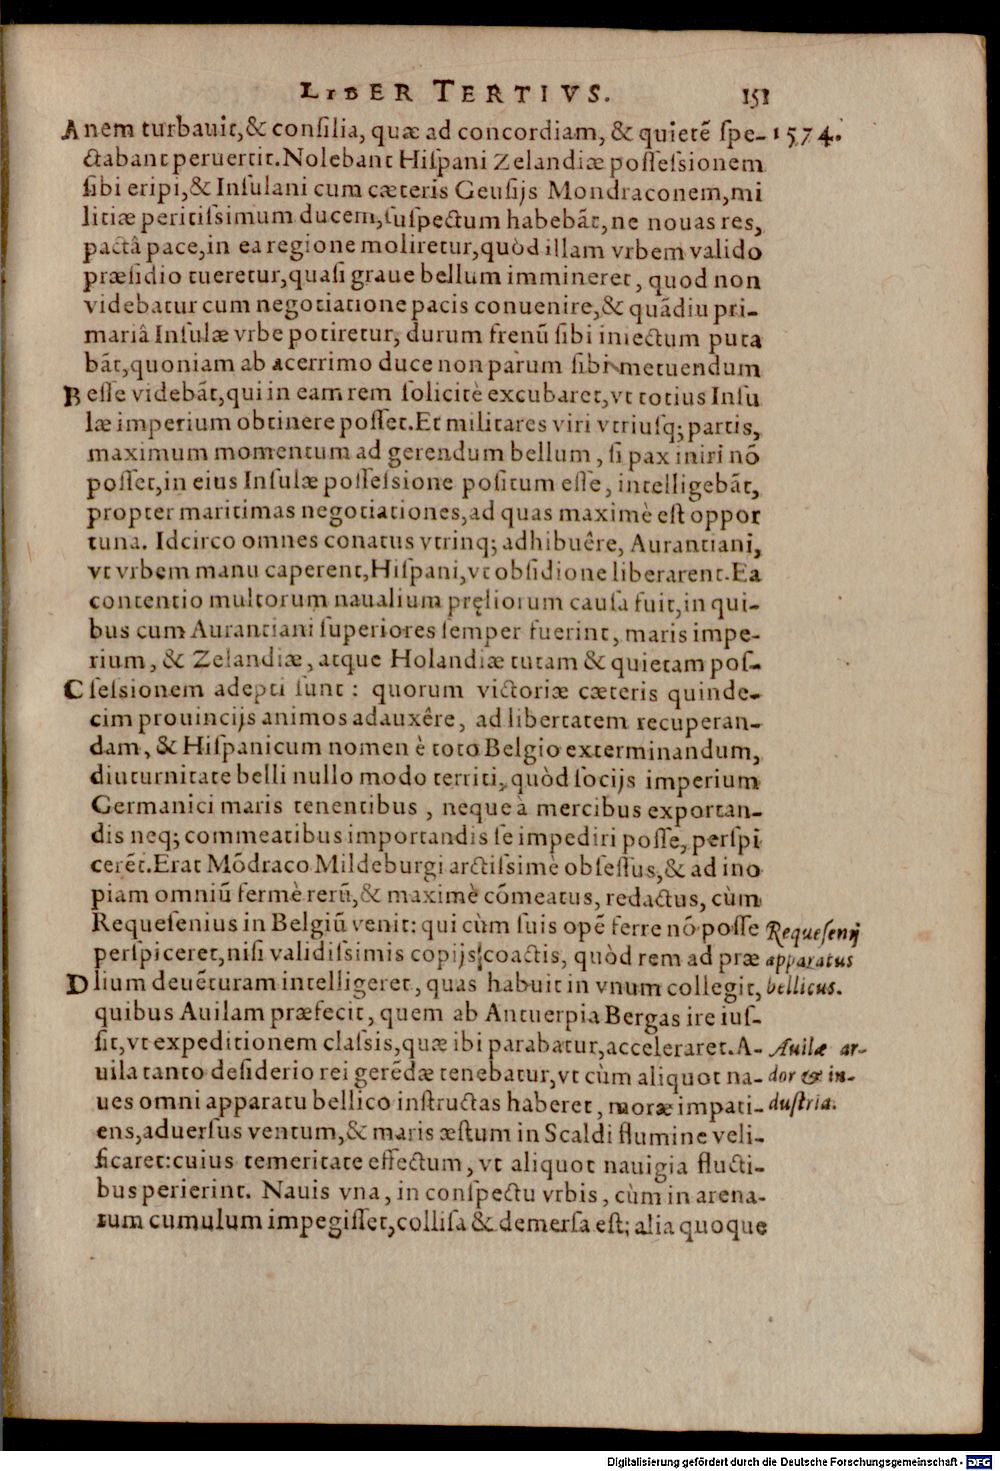 LIBER TERTIVS. 151
A nem turbauit,& consilia, quæ ad concordiam, & quietē spe- 1574.
ctabant peruertit. Nolebant Hispani Zelandiæ possessionem
sibi eripi,& Insulani cum cæteris Geusijs Mondraconem,mi
litiæ peritissimum ducem,suspectum habebāt,ne nouas res,
pactâ pace,in ea regione moliretur,quòd illam vrbem valido
præsidio tueretur,quasi graue bellum immineret, quod non
videbatur cum negotiatione pacis conuenire,& quādiu pri-
mariâ Insulæ vrbe potiretur, durum frenū sibi iniectum puta
bāt,quoniam ab acerrimo duce non parum sibi metuendum
B esse videbāt,qui in eam rem solicitè excubaret,vt totius Insu
læ imperium obtinere posset.Et militares viri vtriusq; partis,
maximum momentum ad gerendum bellum, si pax iniri nō
posset,in eius Insulæ possessione positum esse, intelligebāt,
propter maritimas negotiationes,ad quas maximè est oppor
tuna. Idcirco omnes conatus vtrinq; adhibuêre, Aurantiani,
vt vrbem manu caperent,Hispani,vt obsidione liberarent.Ea
contentio multorum naualium pręliorum causa fuit,in qui-
bus cum Aurantiani superiores semper fuerint, maris impe-
rium, & Zelandiæ, atque Holandiæ tutam & quietam pos-
C sessionem adepti sunt: quorum victoriæ cæteris quinde-
cim prouincijs animos adauxêre, ad libertatem recuperan-
dam, & Hispanicum nomen è toto Belgio exterminandum,
diuturnitate belli nullo modo territi, quòd socijs imperium
Germanici maris tenentibus, neque à mercibus exportan-
dis neq; commeatibus importandis se impediri posse, perspi
cerēt.Erat Mōdraco Mildeburgi arctissimè obsessus,& ad ino
piam omniū fermè rerū,& maximè cōmeatus, redactus, cùm
Requesenius in Belgiū venit: qui cùm suis opē ferre nō posse Requesenij
perspiceret,nisi validissimis copijs coactis, quòd rem ad præ apparatus
D lium deuēturam intelligeret, quas habuit in vnum collegit, bellicus.
quibus Auilam præfecit, quem ab Antuerpia Bergas ire ius-
sit,vt expeditionem classis,quæ ibi parabatur,acceleraret.A- Auilæ ar-
uila tanto desiderio rei gerēdæ tenebatur,vt cùm aliquot na- dor & in-
ues omni apparatu bellico instructas haberet, moræ impati- dustria.
ens,aduersus ventum,& maris æstum in Scaldi flumine veli-
ficaret:cuius temeritate effectum, vt aliquot nauigia flucti-
bus perierint. Nauis vna, in conspectu vrbis, cùm in arena-
rum cumulum impegisset,collisa & demersa est; alia quoque
Digitalisierung gefördert durch die Deutsche Forschungsgemeinschaft - DFG